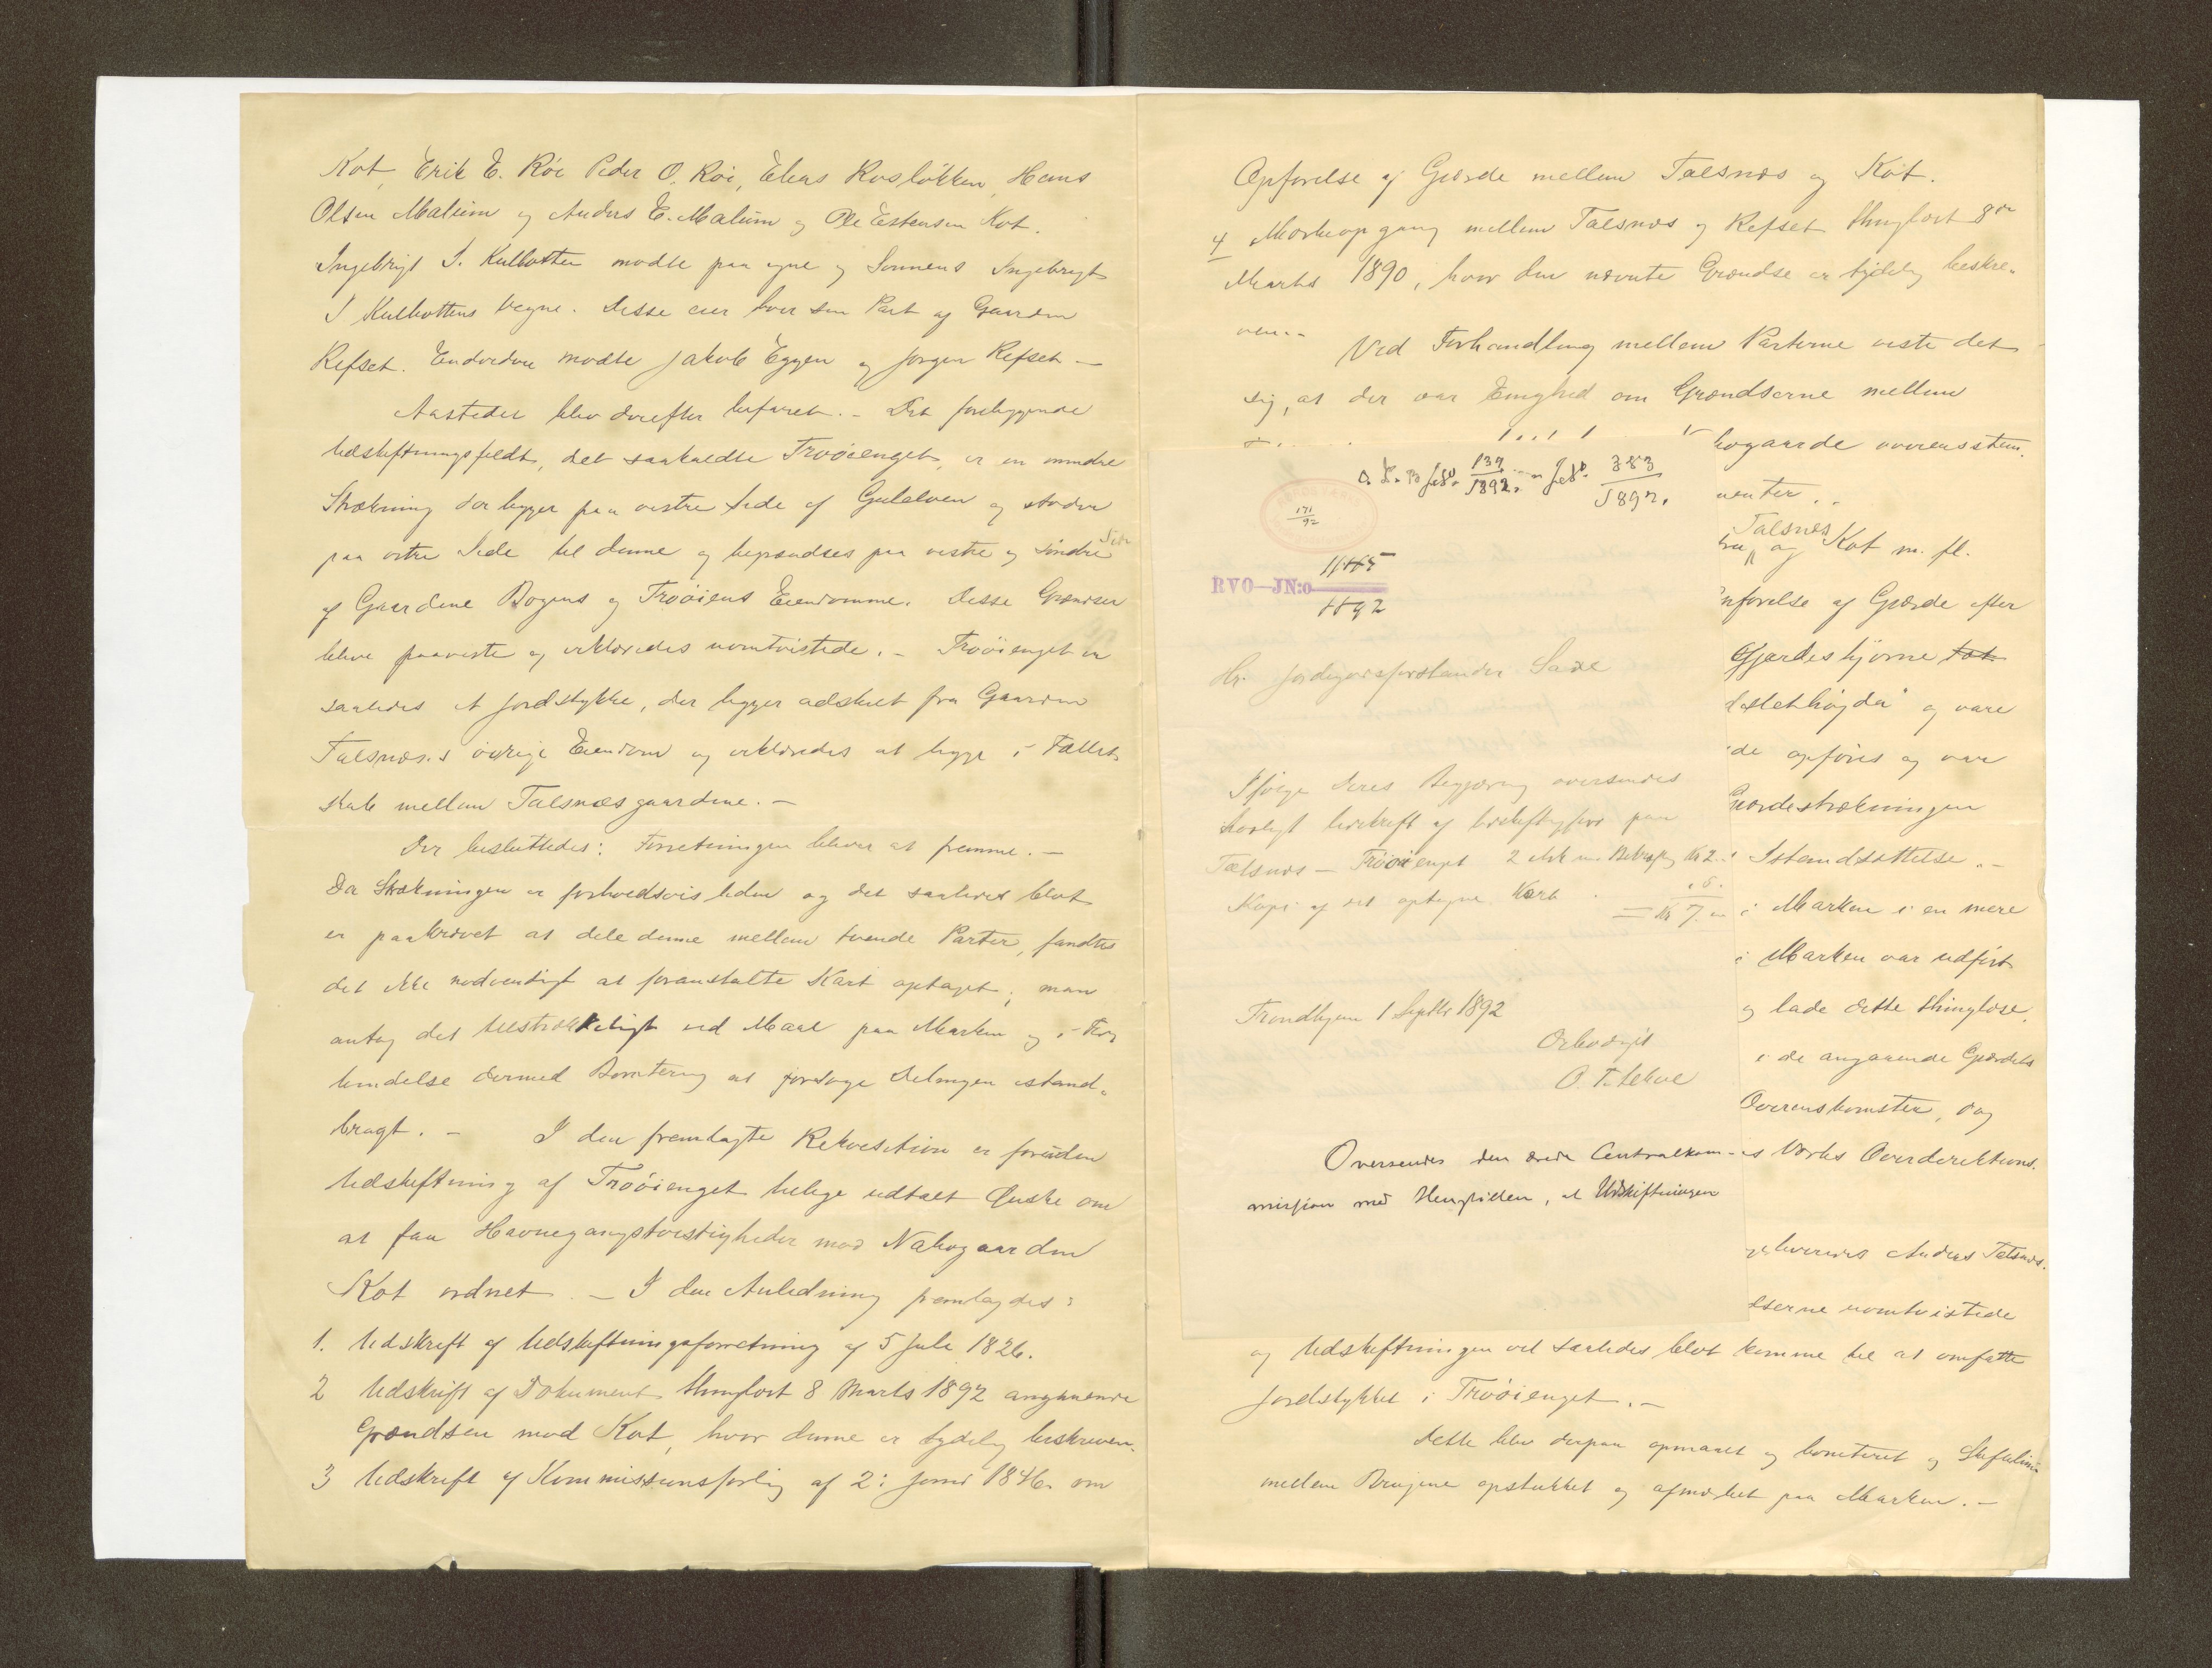 Kot, Erik E. Röi Peder O. Röi, Elias Rosløkken, Hans
Olsen Malum og Anders E. Malum og Ole Estensen Kot.
Ingebrigt I. Kulbotten mødte paa egne og Sønnens Ingebrigt
I Kulbottens Vegne. Disse eier hver sin Part af Gaarden
Refset. Endvidere mødte Jakob Eggen og Jørgen Refset —
Aastedet blev derefter befaret. – Det foreliggende
Udskiftningsfeldt, det saakaldte Trööienget, er en mindre
Strækning der ligger paa vestre Side af Gulelven og støder
paa østre Side til denne og begrændses paa vestre og söndre Side
af Gaardene Bogens og Trööiens Eiendomme. Disse Grændser
bleve paaviste og erklæredes uomtvistede. – Trööienget er
saaledes et Jordstykke, der ligger adskilt fra Gaarden
Talsnæs.s övrige Eiendom og erklæredes at ligge i Fælles-
skab mellem Talsnæsgaardene. –
Der besluttedes: Forretningen bliver at fremme. –
Da Strækningen er forholdsvis liden og det saaledes blot
er paakrævet at dele denne mellem tvende Parter, fandtes
det ikke nødvendigt at foranstalte Kart optaget; man
antog det tilstrækkeligt ved Maal paa Marken og i For
bindelse dermed Bonitering at foretage Delingen istand-
bragt. – I den fremlagte Rekvisition er foruden
Udskiftning af Trööienget tillige udtalt Ønske om
at faa Havnegangstvistigheder mod Nabogaarden
Kot ordnet. – I den Anledning fremlagdes:
1. Udskrift af Udskiftningsforretning af 5 Juli 1826.
2 Udskrift af Dokument thinglæst 8 Marts 1892 angaaende
Grændsen mod Kot, hvor denne er tydelig beskreven.
3 Udskrift af Kommissionsforlig af 2: Juni 1846 om
Opførelse af Gjærde mellem Talsnæs og Kot.
4 Markeopgang mellem Talsnæs og Refset thinglæst 8de
Marts 1890, hvor den nævnte Grændse er tydelig beskre-
ven. –
Ved Forhandling mellem Parterne viste det
sig, at der var Enighed om Grændserne mellem
bogaarde overensstem.
menter. –
Talsnes
og Kot m. fl.
nførelse af Gjærde efter
Gjærdeshjørne tot
sletthøgda" og være
de opføres og var
Gjærdestrækningen
Istandsættelse. –
i Marken i en mere
i Marken var udført
og lade dette thinglæse.
i de angaaende Gjærdets
Overenskomster, dog
s Værks Overdirektions.
Anders Talsnæs.
dserne uomtvistede
og Udskiftningen vil saaledes blot komme til at omfatte
Jordstykket i Trööienget. –
Dette blev derpaa opmaalt og boniteret og Skifteliniɐ
mellem Brugene opstukket og afmærket paa Marken. –
139
1892.
383
1892.
171
92
1115
RVO—JN:o
1892
Hr. Jordeierforstander Saxe
Ifølge Deres Begjæring oversendes
herligt Udskrift af Udskiftngsforr paa
Talsnæs – Trööienget 2 Ark med Bekræftg Kr 2.
Kopi af det optagne Kart
= Kr 7.
Trondhjem 1 Septbr 1892
Ærbødigst
O. T. Lekve
Oversendes den ærede Centralkom-
mission med Henstillen, at Udskiftningen